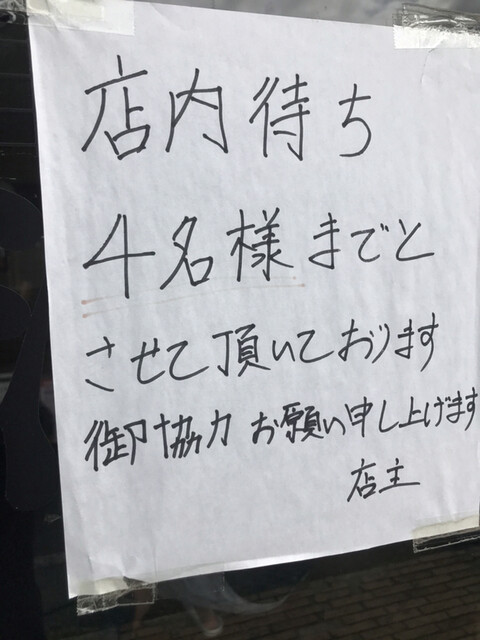 店内待ち
4名様までと
させて頂いております
御協力 お願い申し上げます
店主